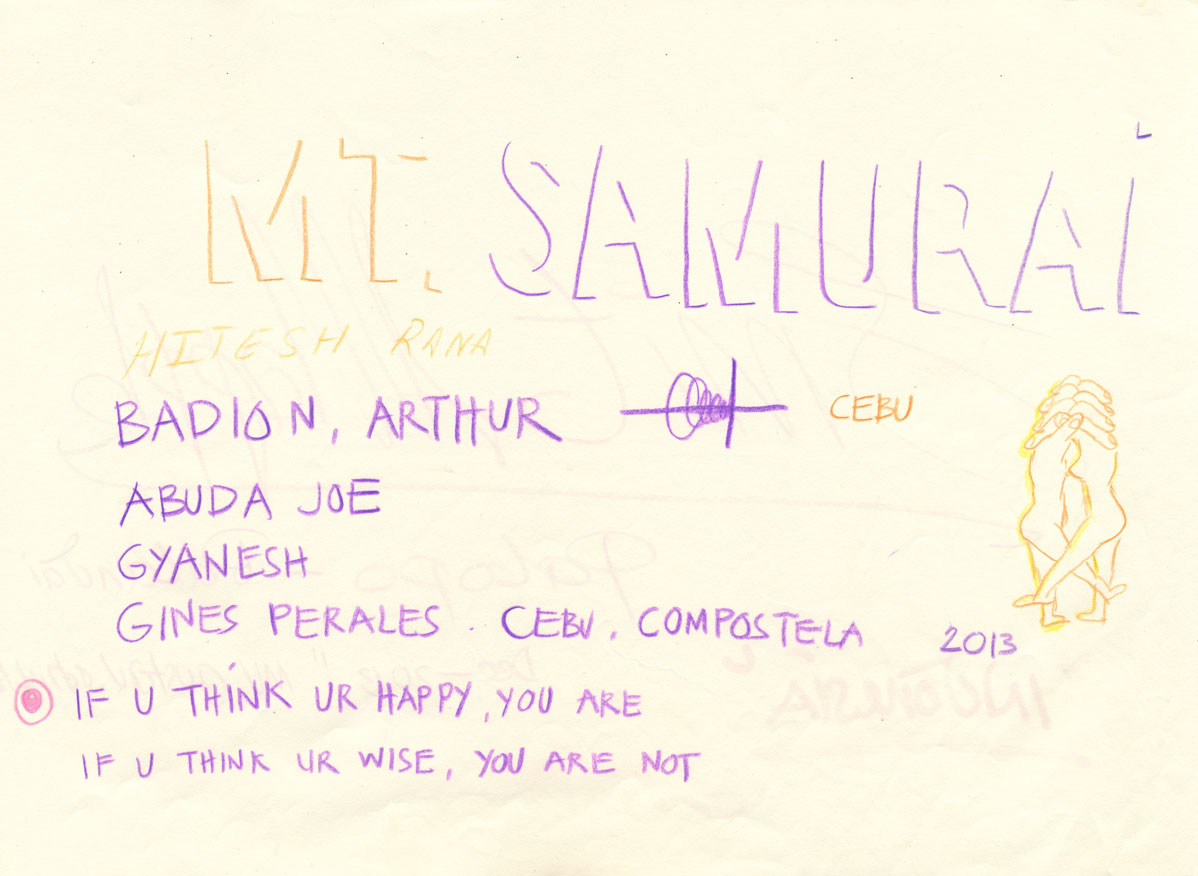 MT. SAMURAI
HITESH RANA
BADION, ARTHUR CEBU
ABUDA JOE
GYANESH
GINES PERALES. CEBU. COMPOSTELA 2013
IF U THINK UR HAPPY, YOU ARE
IF U THINK UR WISE, YOU ARE NOT